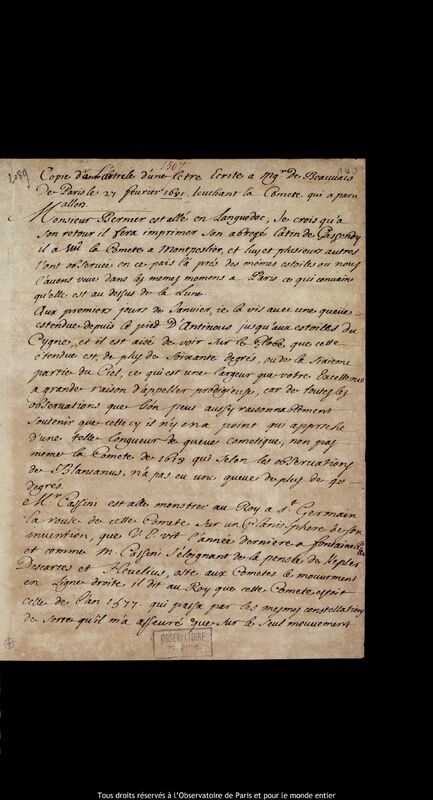 1507
2089
Copie d'un article d'une lettre Ecrite a Mgr. de Beauvais
de Paris le 27 fevrier 1681. touchant la Comete qui a paru
allon.
Monsieur Bernier est allé en Languedoc, Je crois qu'a
son retour il fera imprimer son abregé latin de Gassendy
il a vu la Comete a Montpeslier, et luy et plusieurs autres
l'ont observée en ce païs la prés des mêmes estoiles ou nous
l'avons veue dans les mesmes momens a Paris ce qui convainc
qu'elle est au dessus de la Lune.
Aux premiers jours de Janvier, ie la vis avec une queue
estendue depuis le pied d'Antinous jusqu'aux estoilles du
Cygne, et il est aisé de voir sur le Globe, que cette
étendue est de plus de soixante degrés, ou de la sixieme
partie du Ciel, ce qui est une largeur que votre Excellence
a grande raison d'appeller prodigieuse, car de toutes les
observations que l'on peut aussy raisonnablement
soutenir que celle cy il n'y en a point qui approche
d'une telle longueur de queue cometique, non pas
meme la Comete de 1618 qui selon les observations
de Blancanus, n'a pas eu une queue de plus de 90
degrés.
Mr. Cassini est allé monstrer au Roy a St. Germain
la route de cette Comete sur un Planisphere de son
invention, que V. E. vit l'année derniere a fontainebleau
et comme M. Cassini s'éloignant de la pensée de Kepler
Descartes et Hevelius, oste aux Cometes le mouvement
en ligne droite, il dit au Roy que cette Comete estoit
celle de l'an 1577. qui passa par les mesmes constellations
de sorte qu'il m'a asseuré que sur le seul mouvement
OBSERVATOIRE
DE PARIS
Tous droits réservés à l'Observatoire de Paris et pour le monde entier